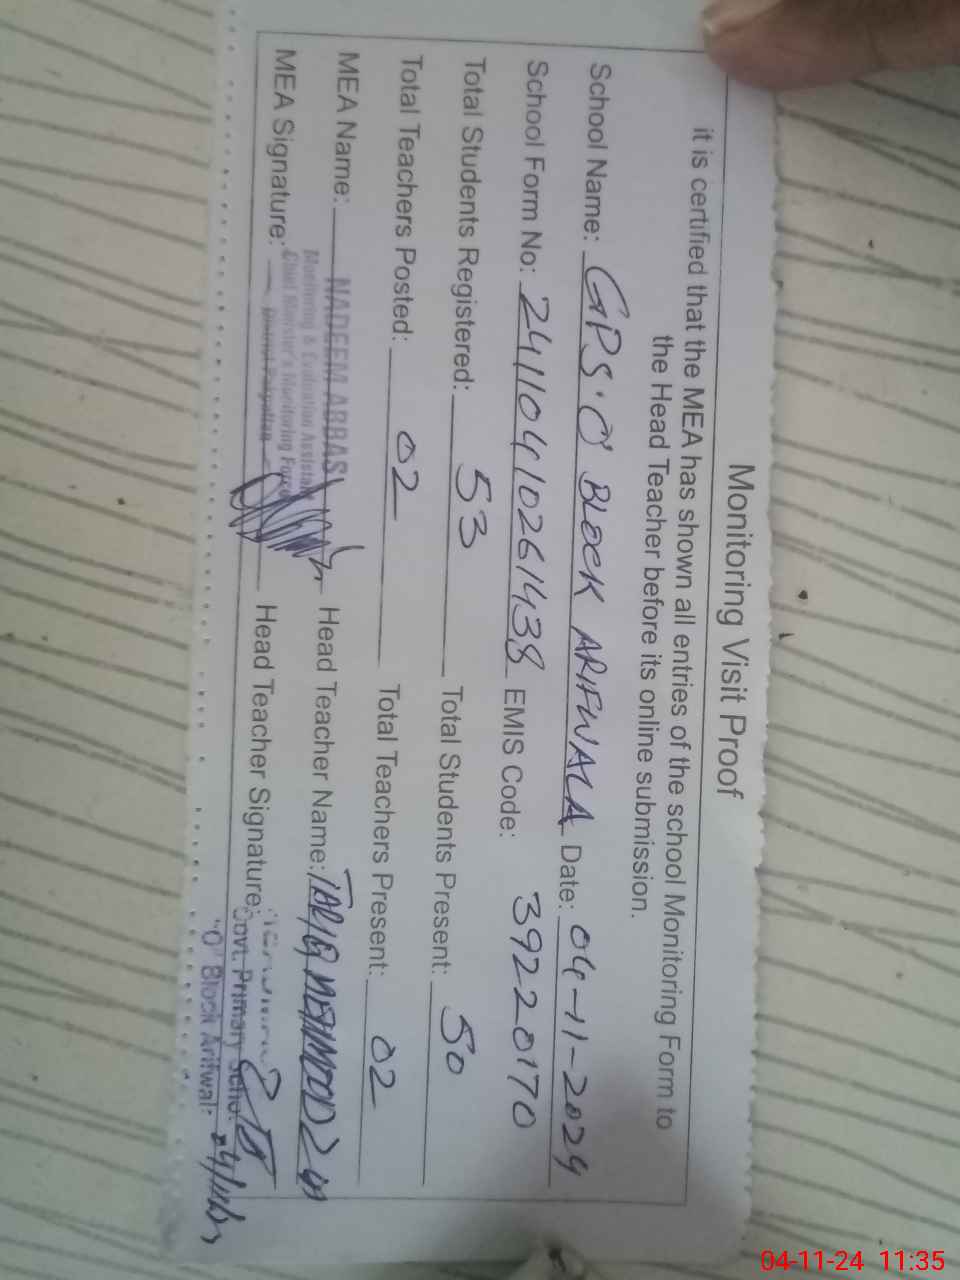 Monitoring Visit Proof
it is certified that the MEA has shown all entries of the school Monitoring Form to
the Head Teacher before its online submission.
School Name: GPS. O BLOCK ARIFWALA Date: 04-11-2024
School Form No: 24110410261438 EMIS Code: 39220170
Total Students Registered: 53 Total Students Present: 50
Total Teachers Posted: 02 Total Teachers Present: 02
MEA Name: NADEEM ABBASI Head Teacher Name: TARIQ MEHMOOD
Monitoring & Evaluation Assistant
Chief Minister's Monitoring Force
MEA Signature: District Pakpattan Head Teacher Signature:
Govt. Primary School
"O" Block Arifwal
04-11-24 11:35